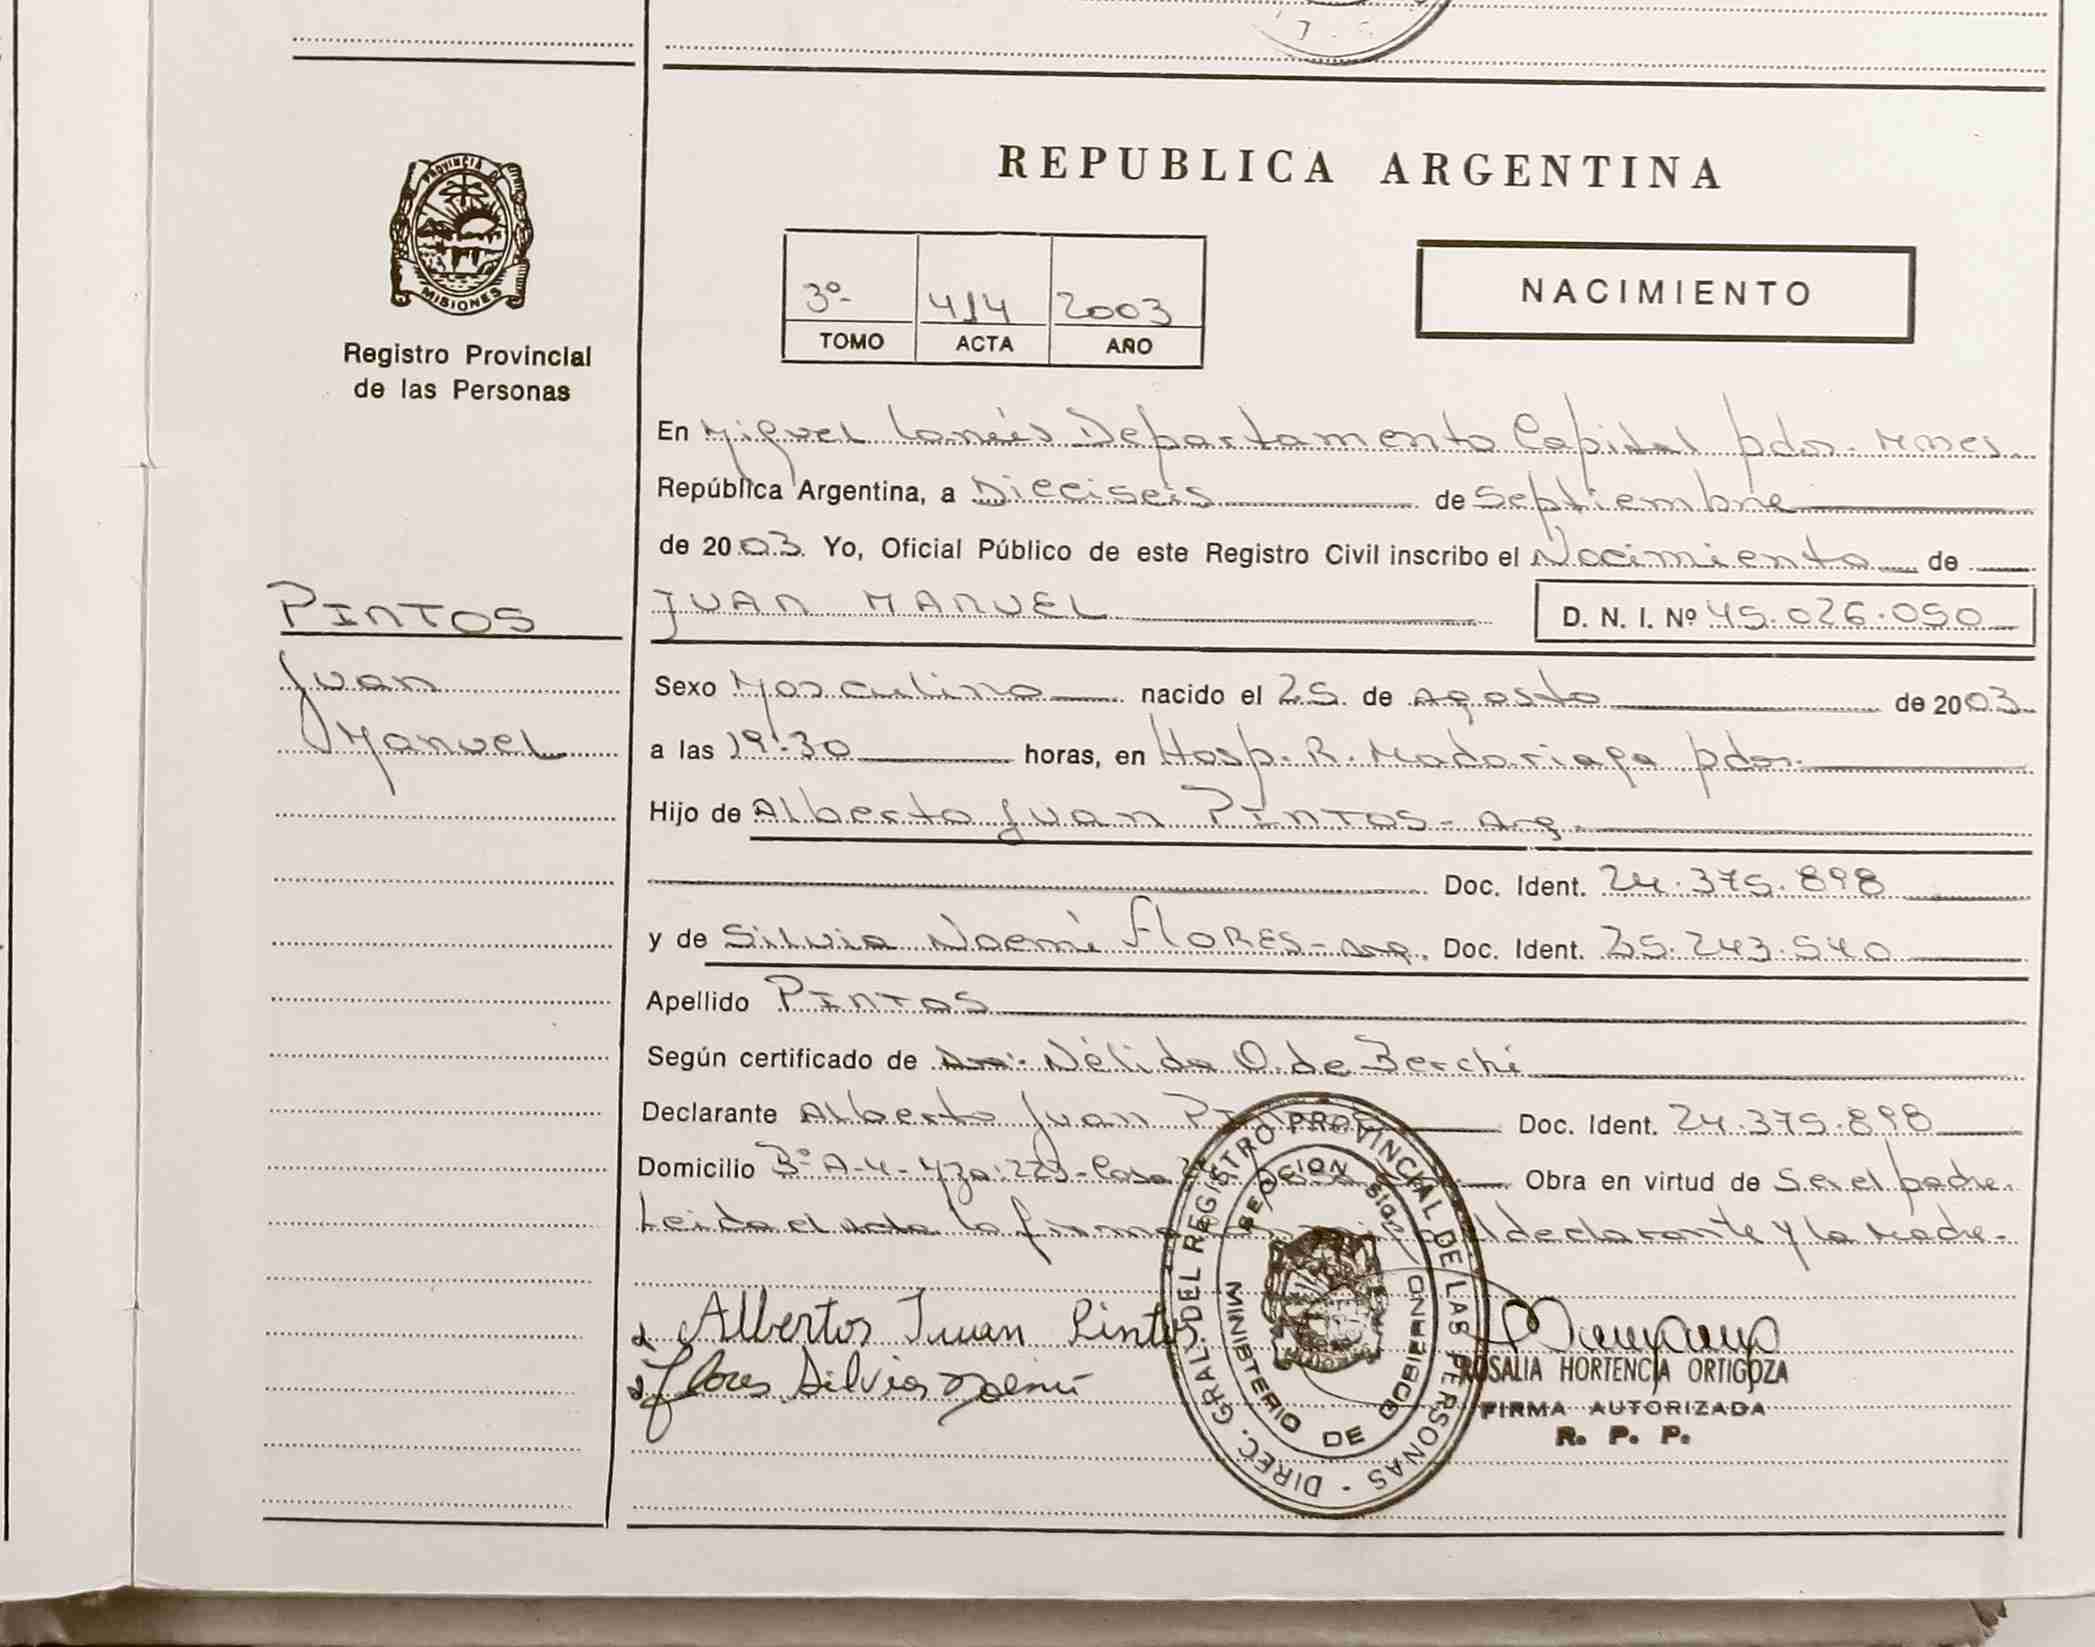 REPUBLICA ARGENTINA
PROVINCIA DE
MISIONES
Registro Provincial
de las Personas
3º 414 2003
TOMO ACTA AÑO
NACIMIENTO
En Miguel Lanús Departamento Capital pdas. Mnes.
República Argentina, a Dieciseis de Septiembre
de 2003. Yo, Oficial Público de este Registro Civil inscribo el Nacimiento de
PINTOS
Juan
Manuel
JUAN MANUEL D. N. I. Nº 45.026.050
Sexo Masculino nacido el 25 de Agosto de 2003
a las 19:30 horas, en Hosp. R. Madariaga pdas.
Hijo de Alberto Juan PINTOS - Arg.
Doc. Ident. 24.375.898
y de Silvia Noemí FLORES - Arg. Doc. Ident. 25.243.540
Apellido PINTOS
Según certificado de Dra. Nélida O. de Berchi
Declarante Alberto Juan PINTOS Doc. Ident. 24.375.898
Domicilio 3º A-4- Mza: 223- Casa Obra en virtud de Ser el padre.
Leida el acta la firma el declarante y la Madre.
Alberto Juan Pintos
Flores Silvia Noemí
DIREC. GRAL. DEL REGISTRO PROVINCIAL DE LAS PERSONAS
MINISTERIO DE GOBIERNO
ROSALIA HORTENCIA ORTIGOZA
FIRMA AUTORIZADA
R. P. P.